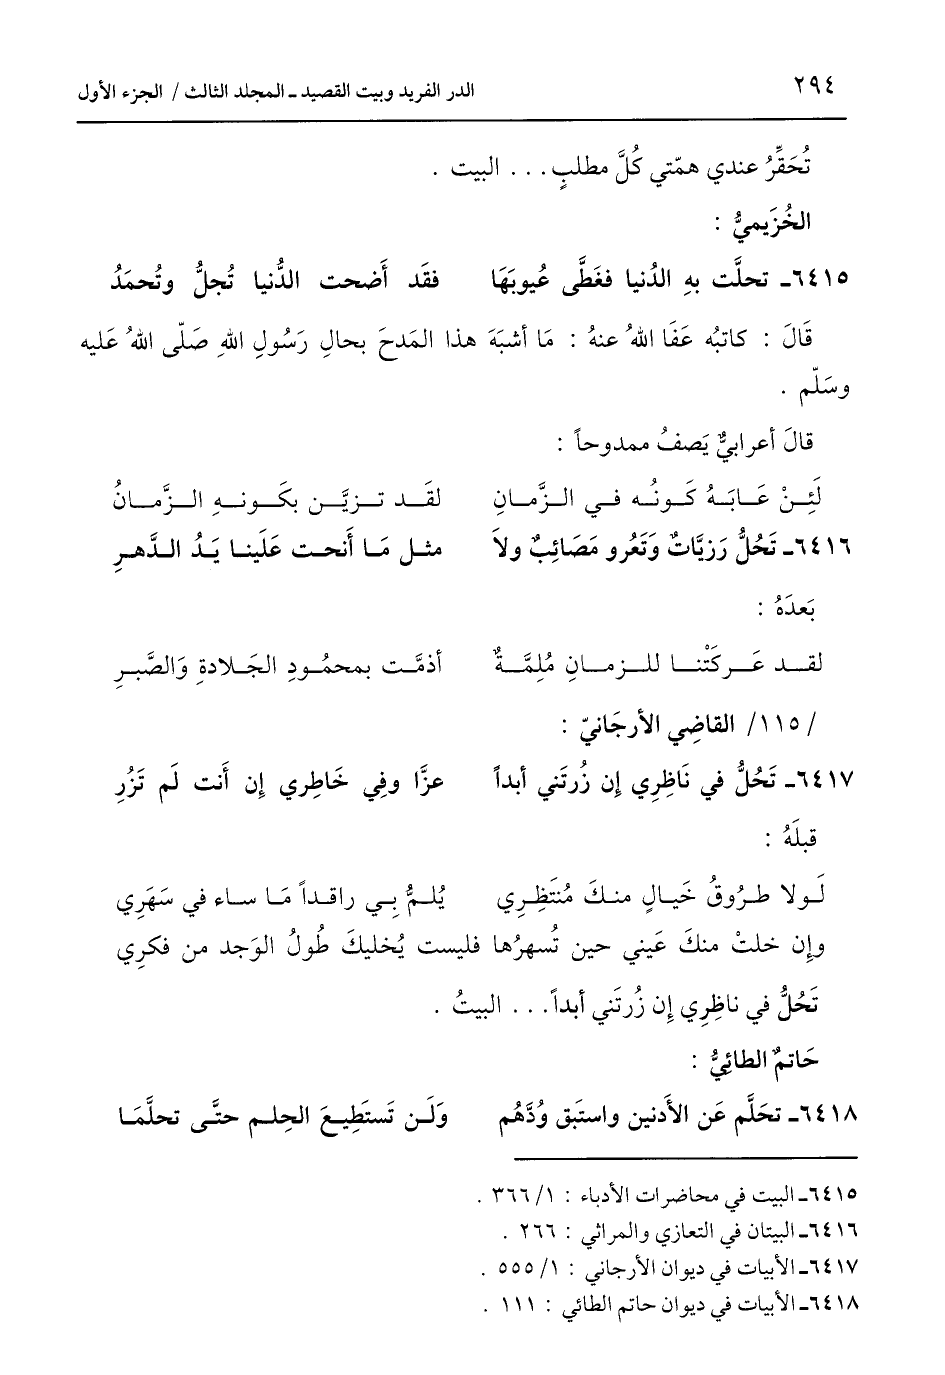 ٢٩٤ الدر الفريد وبيت القصيد ـ المجلد الثالث / الجزء الأول
تُحَقِّرُ عندي همّتي كُلَّ مطلبٍ . . . البيت .
الخُزَيميُّ :
٦٤١٥ـ تحلَّت بهِ الدُنيا فغَطَّى عُيوبَهَا فقَد أَضحت الدُّنيا تُجلُّ وتُحمَدُ
قَالَ : كاتبُه عَفَا اللهُ عنهُ : مَا أشبَهَ هذا المَدحَ بحالِ رَسُولِ اللهِ صَلّى اللهُ عَليه
وسَلّم .
قالَ أعرابيٌّ يَصفُ ممدوحاً :
لَئِنْ عَـابَـهُ كَـونُـه فـي الـزَّمـانِ لقَـد تـزيَّـن بكَـونـهِ الـزَّمـانُ
٦٤١٦ـ تَحُلُّ رَزيَّاتٌ وَتَعرُو مَصَائِبٌ ولاَ مثـل مَـا أَنحـت عَلَينـا يَـدُ الـدَّهـرِ
بَعدَهُ :
لقـد عَـركَتْنـا للـزمـانِ مُلِمَّـةٌ أذمَّـت بمحمُـودِ الجَـلادةِ وَالصَّبـرِ
/ ١١٥/ القَاضِي الأرجَانيّ :
٦٤١٧ـ تَحُلُّ في نَاظِرِي إن زُرتَني أبداً عزَّا وفِي خَاطِري إن أَنت لَم تَزُرِ
قبلَهُ :
لَـولا طـرُوقُ خَيـالٍ منـكَ مُنتَظِـرِي يُلـمُّ بِـي راقـداً مَـا سـاء في سَهَرِي
وإن خلتْ منكَ عَيني حين تُسهرُها فليست يُخليكَ طُولُ الوَجد من فكرِي
تَحُلُّ في ناظِرِي إن زُرتَني أبداً . . . البيتُ .
حَاتمٌ الطائِيُّ :
٦٤١٨ـ تحَلَّم عَن الأَدنين واستَبق وُدَّهُم وَلَـن تَستَطِيـعَ الحِلـم حتَّـى تحلَّمَـا
٦٤١٥ـ البيت في محاضرات الأدباء : ١/ ٣٦٦ .
٦٤١٦ـ البيتان في التعازي والمراثي : ٢٦٦ .
٦٤١٧ـ الأبيات في ديوان الأرجاني : ١/ ٥٥٥ .
٦٤١٨ـ الأبيات في ديوان حاتم الطائي : ١١١ .